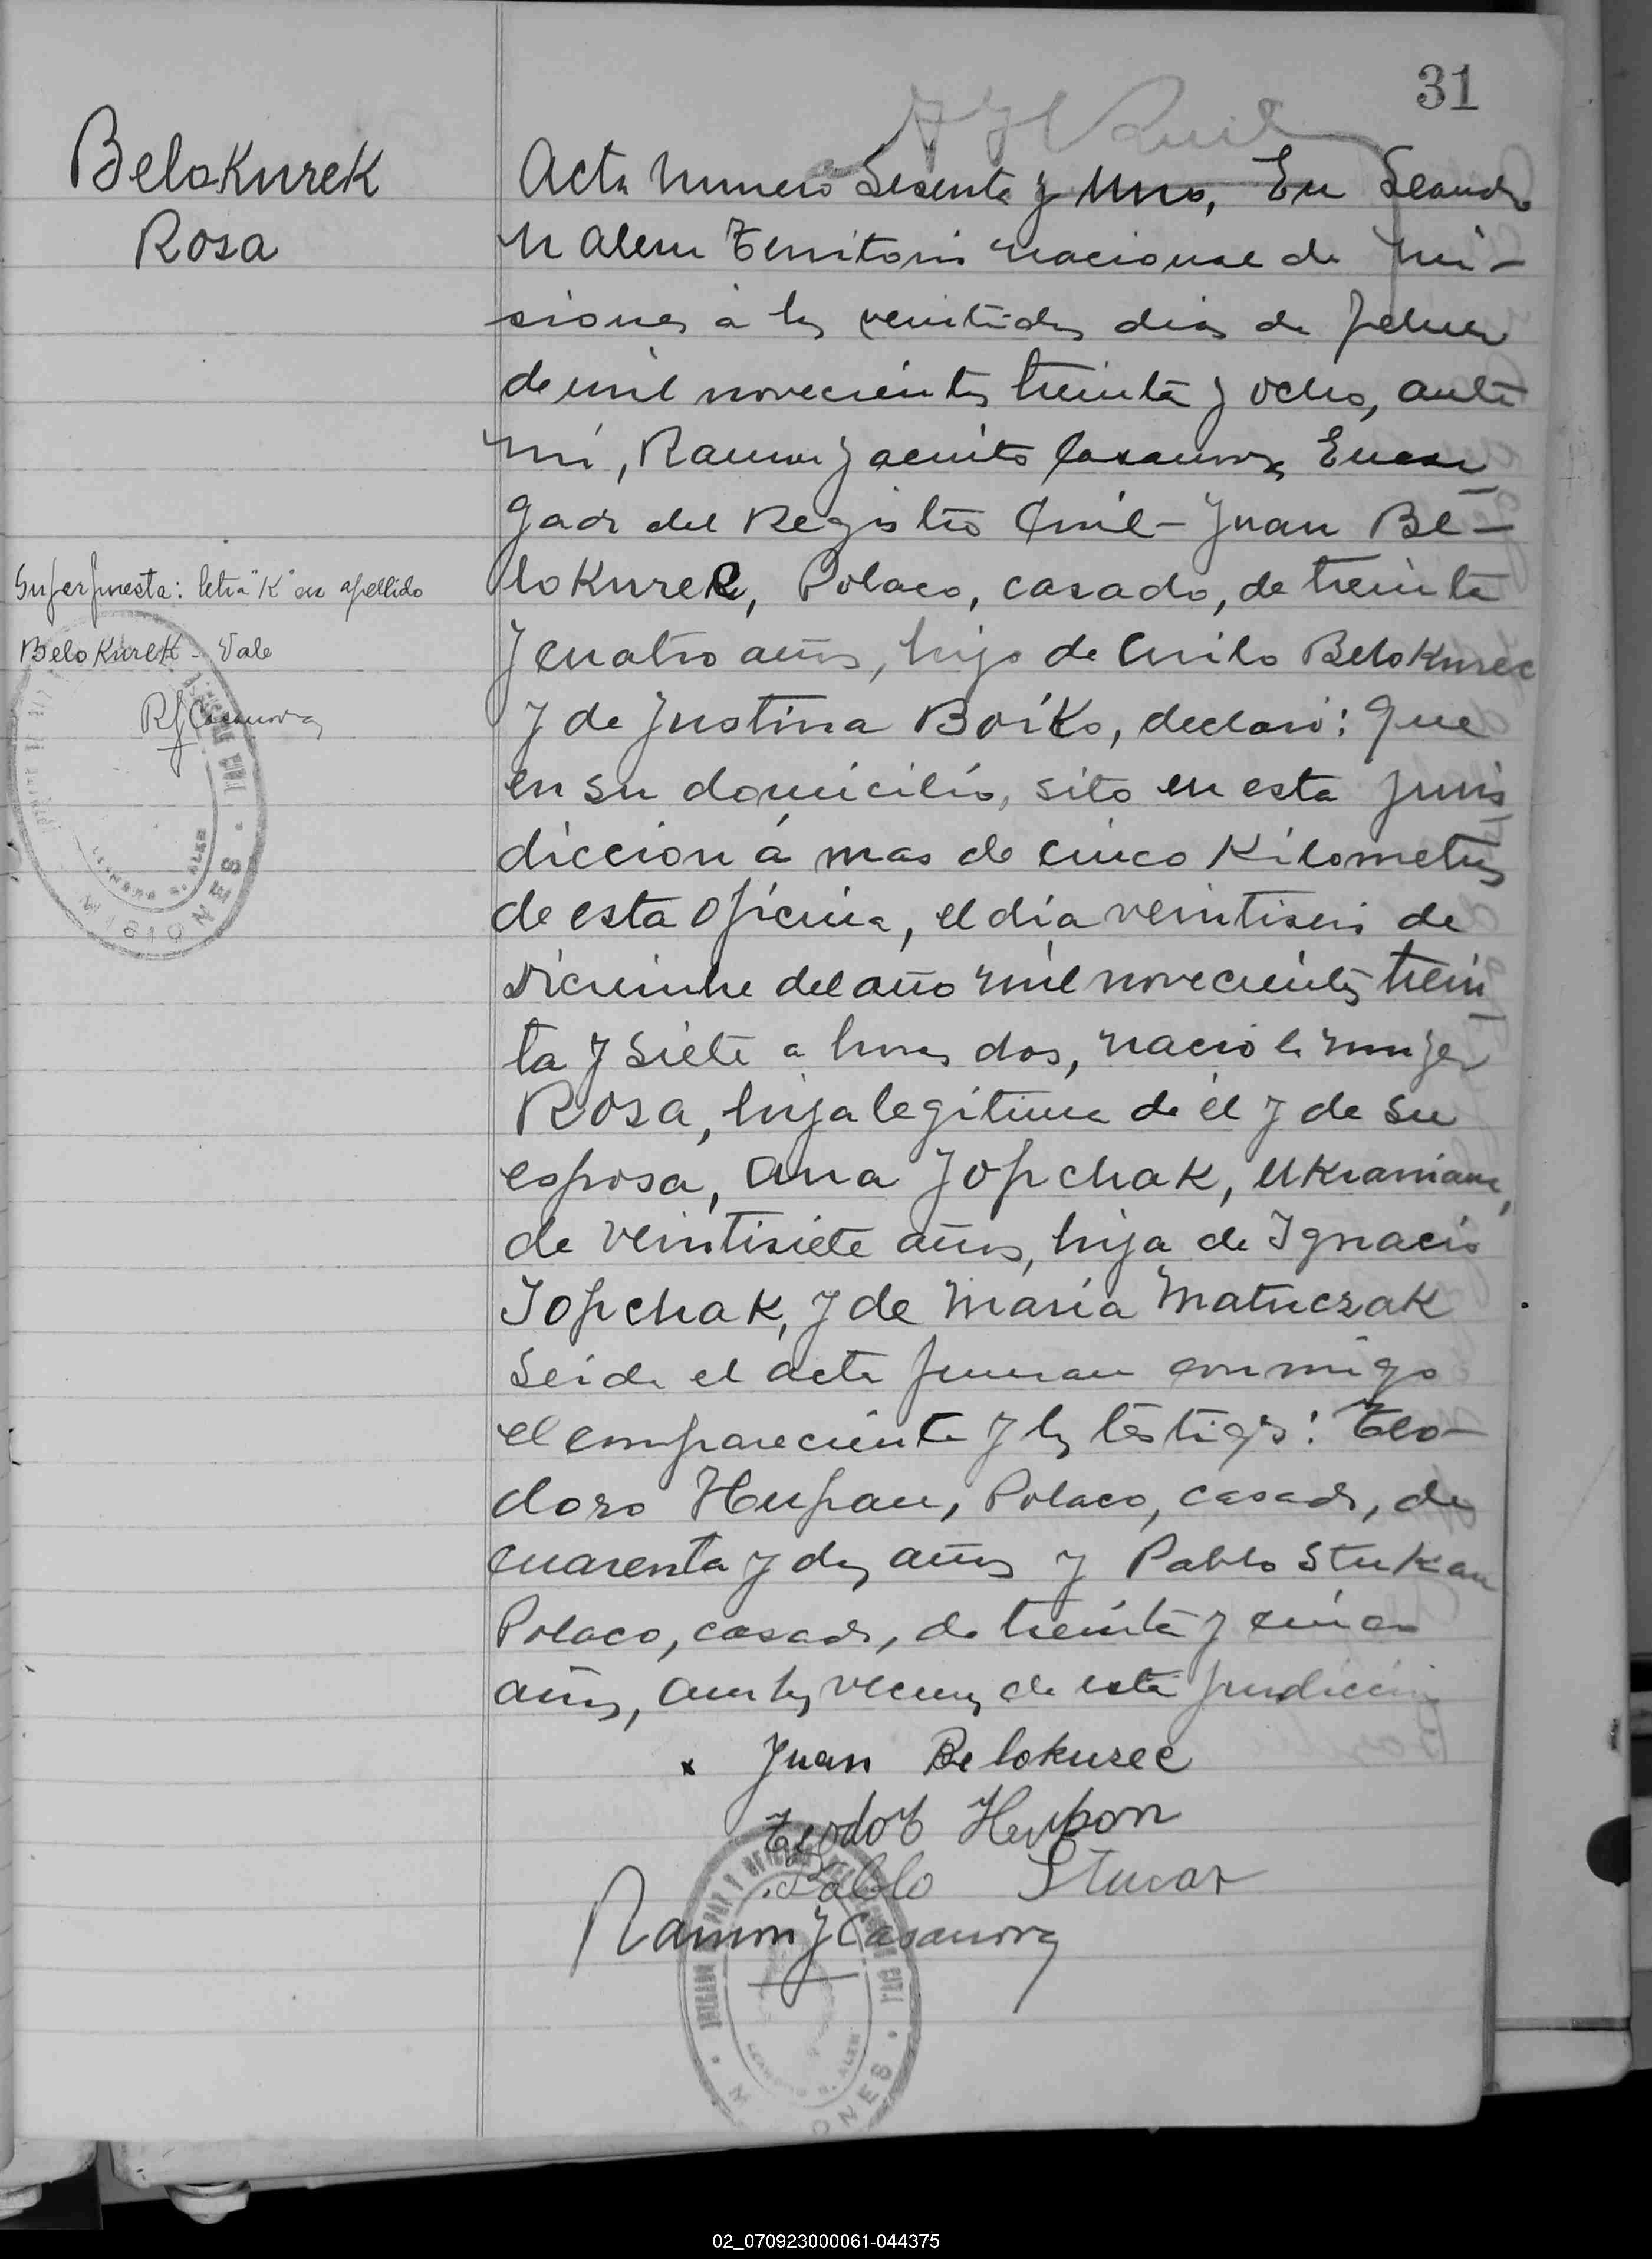 31
Belokurek
Rosa
Acta Numero Sesenta y Uno, En Leandro
N Alem Territorio nacional de Mi-
siones a los veintidos dias de Febrero
de mil novecientos treinta y ocho, ante
mi, Ramon Jacinto Casanova, Encar
gado del Registro Civil - Juan Be-
lokurek, Polaco, casado, de treinta
y cuatro años, hijo de Cirilo Belokurec
y de Justina Boiko, declaró: Que
en su domicilio, sito en esta juris
diccion á mas de cinco Kilometros
de esta Oficina, el día veintiseis de
Diciembre del año mil novecientos trein
ta y siete a horas dos, nacio la mujer
Rosa, hija legitima de él y de su
esposa, Ana Jopchak, Ukraniana,
de veintisiete años, hija de Ignacio
Jopchak, y de Maria Matuczak
Leida el acta firman conmigo
el compareciente y los testigos: Teo-
doro Hupan, Polaco, casado, de
cuarenta y dos años y Pablo Stukan
Polaco, casado, de treinta y cinco
años, ambos vecinos de esta juridiccion
x Juan Belokurec
Teodor Hupon
Pablo Stucar
Ramon J Casanova
Superpuesta: letra "K" en apellido
Belokurek - Vale
RJCasanova
REGISTRO CIVIL
LEANDRO N. ALEM
MISIONES
JUZGADO DE PAZ
LEANDRO N. ALEM
02_070923000061-044375